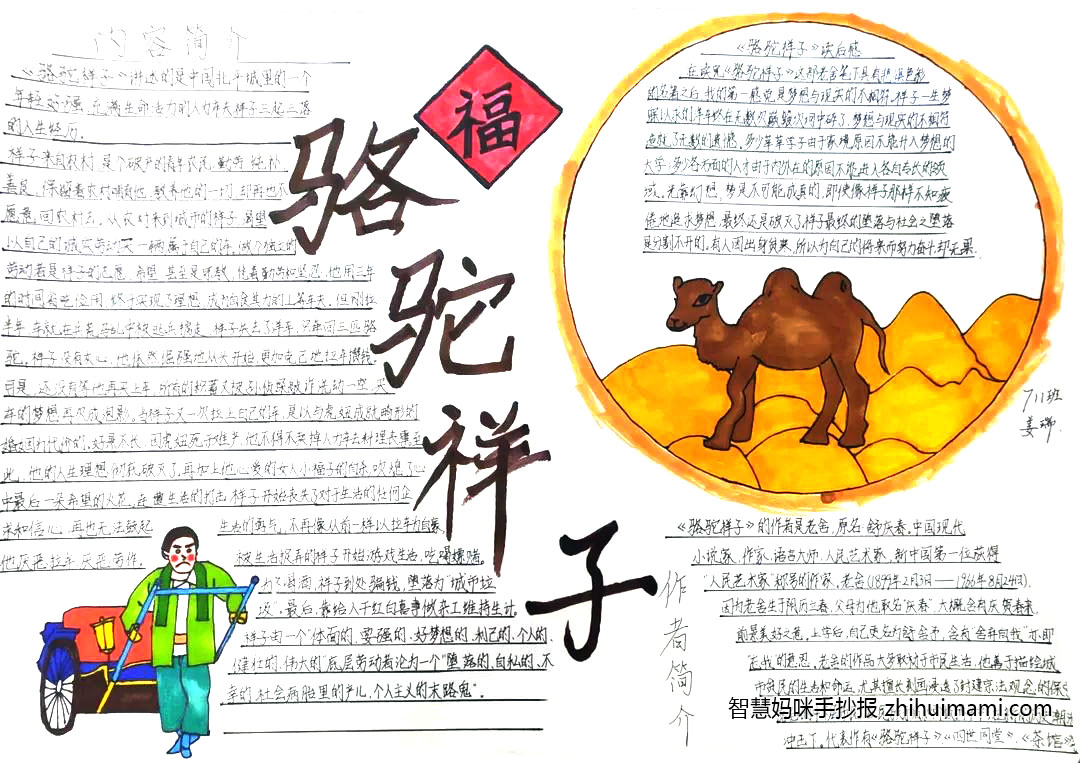 内容简介
《骆驼祥子》讲述的是中国北平城里的一个
年轻好强、充满生命活力的人力车夫祥子三起三落
的人生经历。
祥子来自农村,是个破产的青年农民,勤劳、纯朴、
善良,保留着农村哺育他、教养他的一切,却再也不
愿意回农村去。从农村来到城市的祥子,渴望
以自己的诚实劳动买一辆属于自己的车。做个独立的
劳动者是祥子的志愿、希望,甚至是宗教,凭着勤劳和坚忍,他用三年
的时间省吃俭用,终于实现了理想,成为自食其力的上等车夫。但刚拉
半年,车就在兵荒马乱中被逃兵掳走,祥子失去了洋车,只牵回三匹骆
驼。祥子没有灰心,他依然倔强地从头开始,更加克己地拉车攒钱。
可是,还没有等他再买上车,所有的积蓄又被侦探敲诈、洗劫一空,买
车的梦想再次成泡影。当祥子又一次拉上自己的车,是以与虎妞成就畸形的
婚姻为代价的。好景不长,因虎妞死于难产,他不得不卖掉人力车去料理丧事。至
此,他的人生理想彻底破灭了。再加上他心爱的女人小福子的自杀,吹熄了心
中最后一朵希望的火花。在遭生活的打击,祥子开始丧失了对于生活的任何企
求和信心,再也无法鼓起
生活的勇气,不再像从前一样以拉车为自豪,
他厌恶拉车,厌恶劳作。
被生活捉弄的祥子开始游戏生活,吃喝嫖赌。
为了喝酒,祥子到处骗钱,堕落为“城市垃
圾”。最后,靠给人干红白喜事做杂工维持生计。
祥子由一个“体面的、要强的、好梦想的、利己的、个人的、
健壮的、伟大的”底层劳动者沦为一个“堕落的、自私的、不
幸的、社会病胎里的产儿,个人主义的末路鬼”。
福
骆
驼
祥
子
《骆驼祥子》读后感
在读完《骆驼祥子》这部老舍笔下具有悲惨色彩
的名著之后,我的第一感觉是梦想与现实的不相符。祥子一生梦
的大学,多少各方面的人才由于内外在的原因不能进入各自专长的领
域。光靠幻想,梦是不可能成真的,即使像祥子那样不知疲
倦地追求梦想,最终还是破灭了。祥子最终的堕落与社会之堕落
是分割不开的。有人因出身贫寒,所以为自己的将来而努力奋斗却无果。
711班
姜瑞
作者简介
《骆驼祥子》的作者是老舍,原名舒庆春,中国现代
小说家、作家、语言大师、人民艺术家,新中国第一位获得
“人民艺术家”称号的作家。老舍(1899年2月3日——1966年8月24日),
因为老舍生于阴历立春,父母为他取名“庆春”,大概含有庆贺春来、
前景美好之意。上学后,自己更名为舒舍予,含有“舍弃自我”,亦即
“忘我”的意思。老舍的作品大多取材于市民生活,他善于描绘城
市贫民的生活和命运,尤其擅长刻画浸透了封建宗法观念的保
冲击下。代表作有《骆驼祥子》、《四世同堂》、《茶馆》
智慧妈咪手抄报 zhihuimami.com